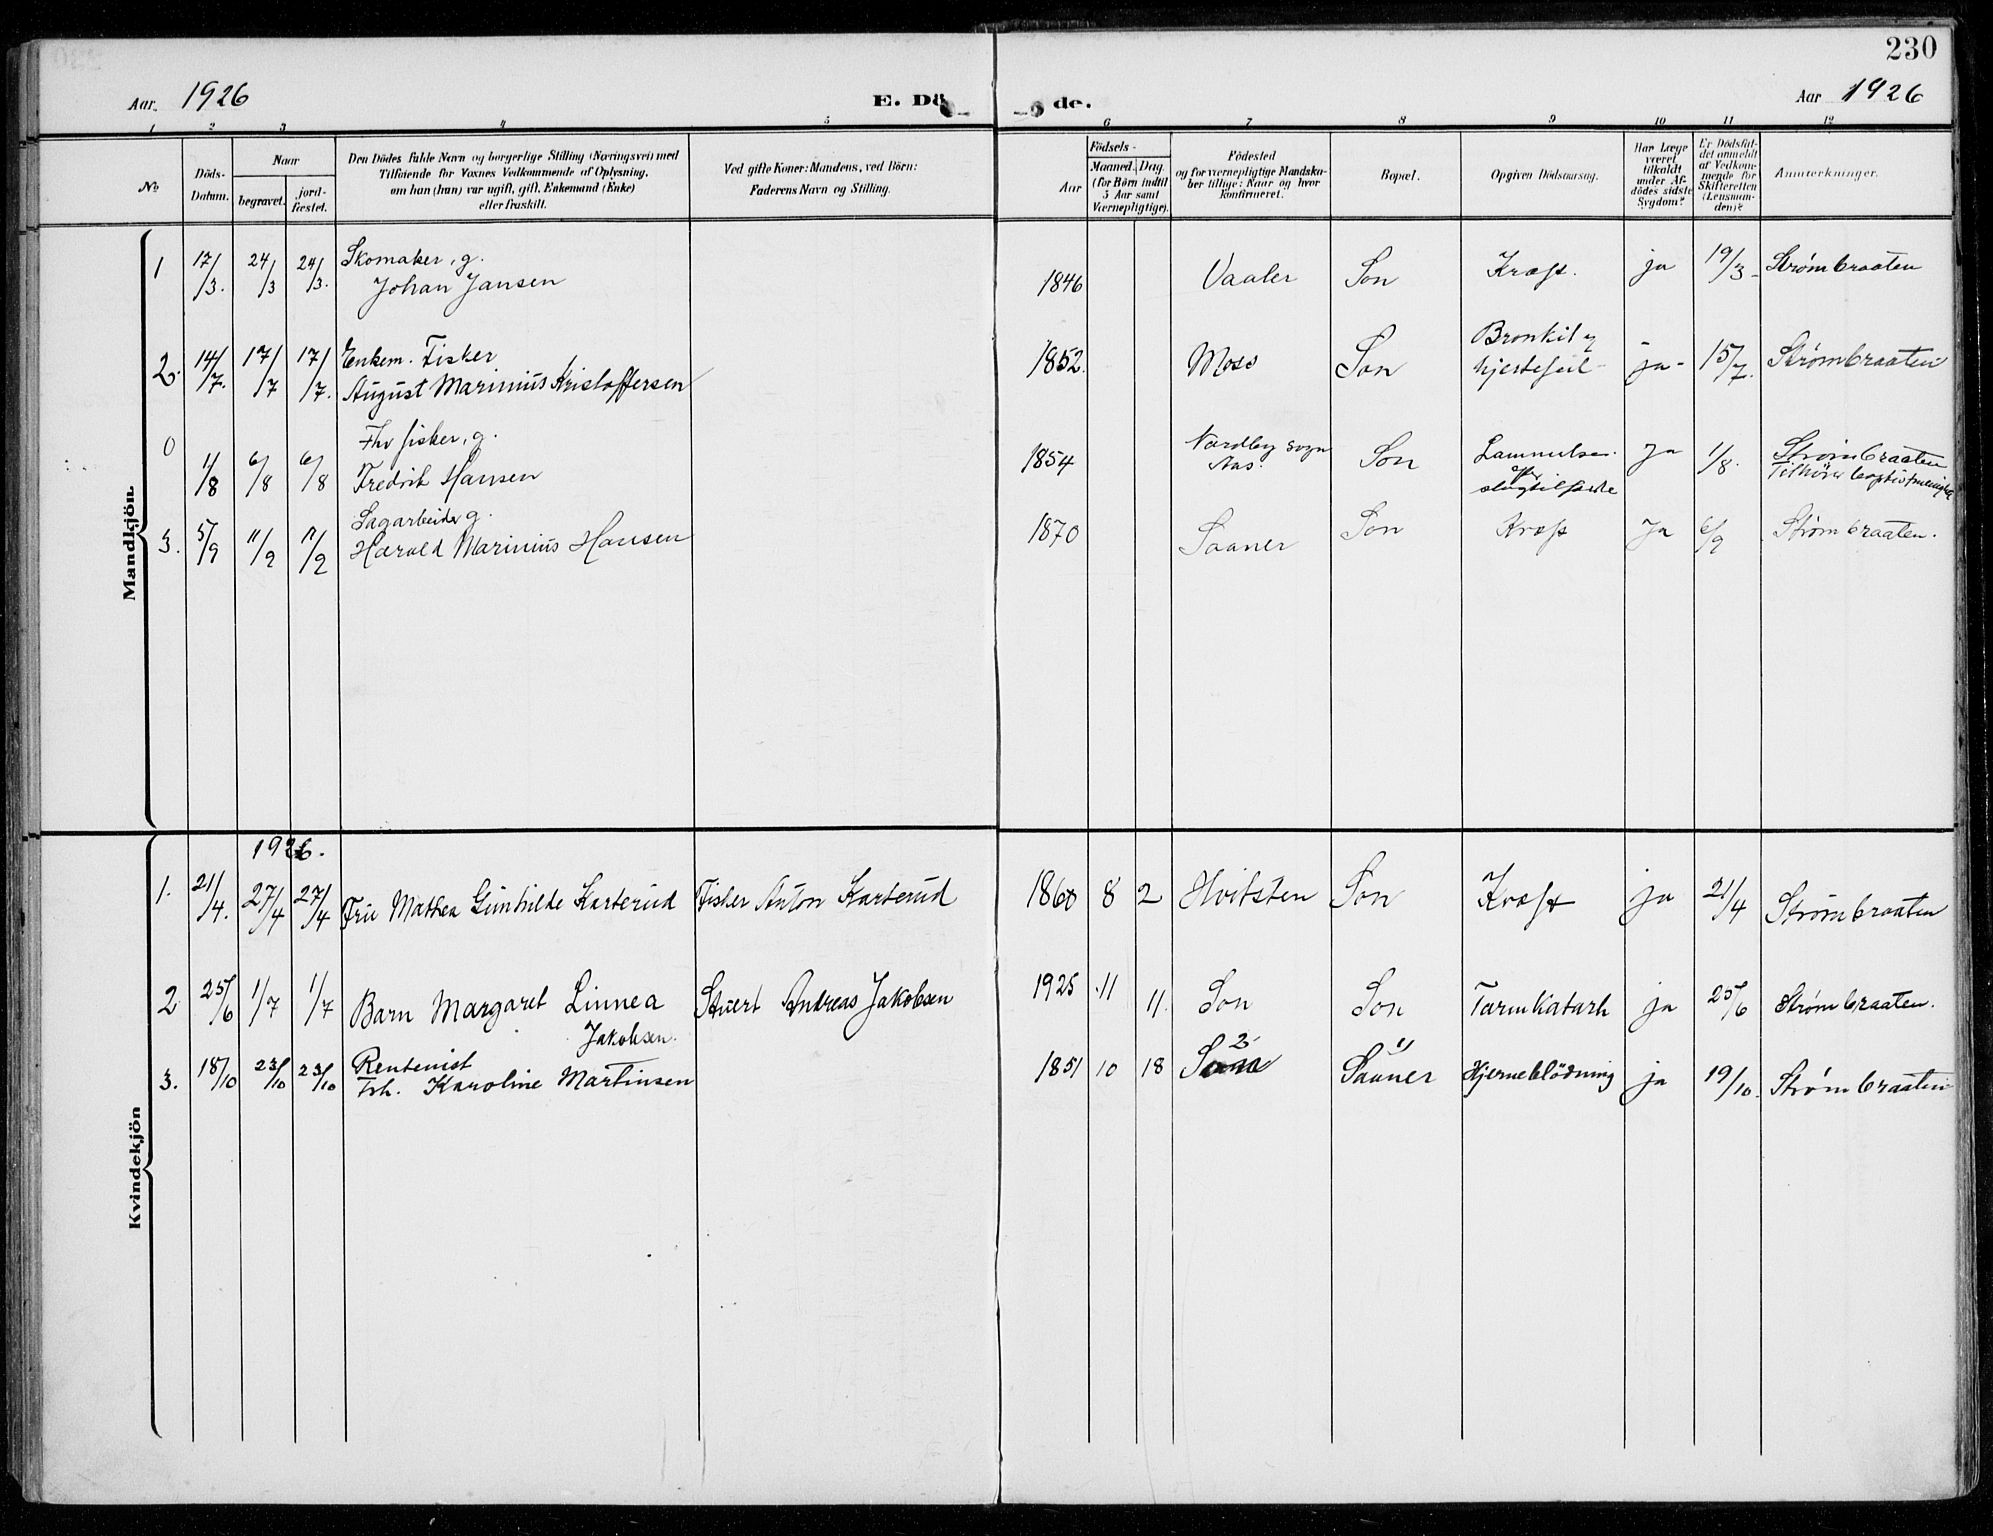 230
Aar. 1926 E. Dö de. Aar 1926
1 2 3 4 5 6 7 8 9 10 11 12
No
Döds-
Datum.
Naar
begravet.
jord-
fæstet.
Den Dödes fulde Navn og borgerlige Stilling (Næringsvei) med
Tilføiende for Voxnes Vedkommende af Oplysning,
om han (hun) var ugift, gift, Enkemand (Enke)
eller fraskilt.
Ved gifte Koner: Mandens, ved Börn:
Faderens Navn og Stilling.
Födsels-
Aar
Maaned. Dag.
(for Börn indtil
5 Aar samt
Værnepligtige).
Födested
og for værnepligtige Mandska-
ber tillige: Naar og hvor
konfirmeret.
Bopæl.
Opgiven Dödsaarsag.
Har Læge
været
tilkaldt
under Af-
dödes sidste
Sygdom?
Er Dödsfal-
det anmeldt
af Vedkom-
mende for
Skifteretten
(Lensman-
den)?
Anmærkninger.
Mandkjön.
1 17/3. 24/3 24/3. Skomaker, g.
Johan Jansen 1846 Vaaler Son Kræft. ja 19/3 - Strømbraaten
2. 14/7. 17/7 17/7. Enkem. Fisker
August Marinius Kristoffersen 1852. Moss Son Bronkit og
hjertefeil - ja - 15/7. Strømbraaten
0 1/8 6/8 6/8 Fhv fisker, g.
Fredrik Hansen 1854 Nordby sogn
Aas. Son Lammelser
efter
slagtilfælde Ja 1/8. Strømbraaten
Tilhører baptistmenigh.
3. 5/9 11/9 11/9 Sagarbeider g.
Harald Marinius Hansen 1870 Saaner Son Kræft Ja 6/9 Strømbraaten.
Kvindekjön
1926.
1. 21/4. 27/4 27/4 Fru Mathea Gunhilde Karterud Fisker Anton Karterud 1860 8 2 Hvitsten Son Kræft ja 21/4 Strømbraaten
2 25/6 1/7 1/7 Barn Margaret Linnea
Jakobsen. Stuert Andreas Jakobsen 1925 11 11. Son Son Tarmkatarh ja 25/6 Strømbraaten.
3. 18/10 23/10 23/10 Rentenist
Frk. Karoline Martinsen 1851 10 18 2 Son 1) Saaner Hjerneblödning ja 19/10. Strømbraaten